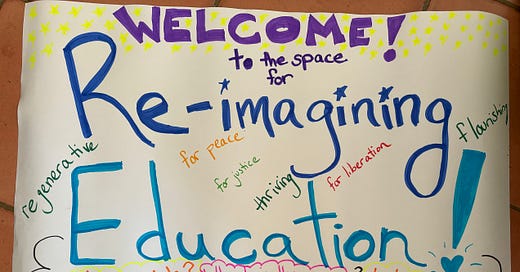 WELCOME!
to the space
for
Re-imagining
regenerative
for peace
for justice
thriving
for liberation
flourishing
Education!